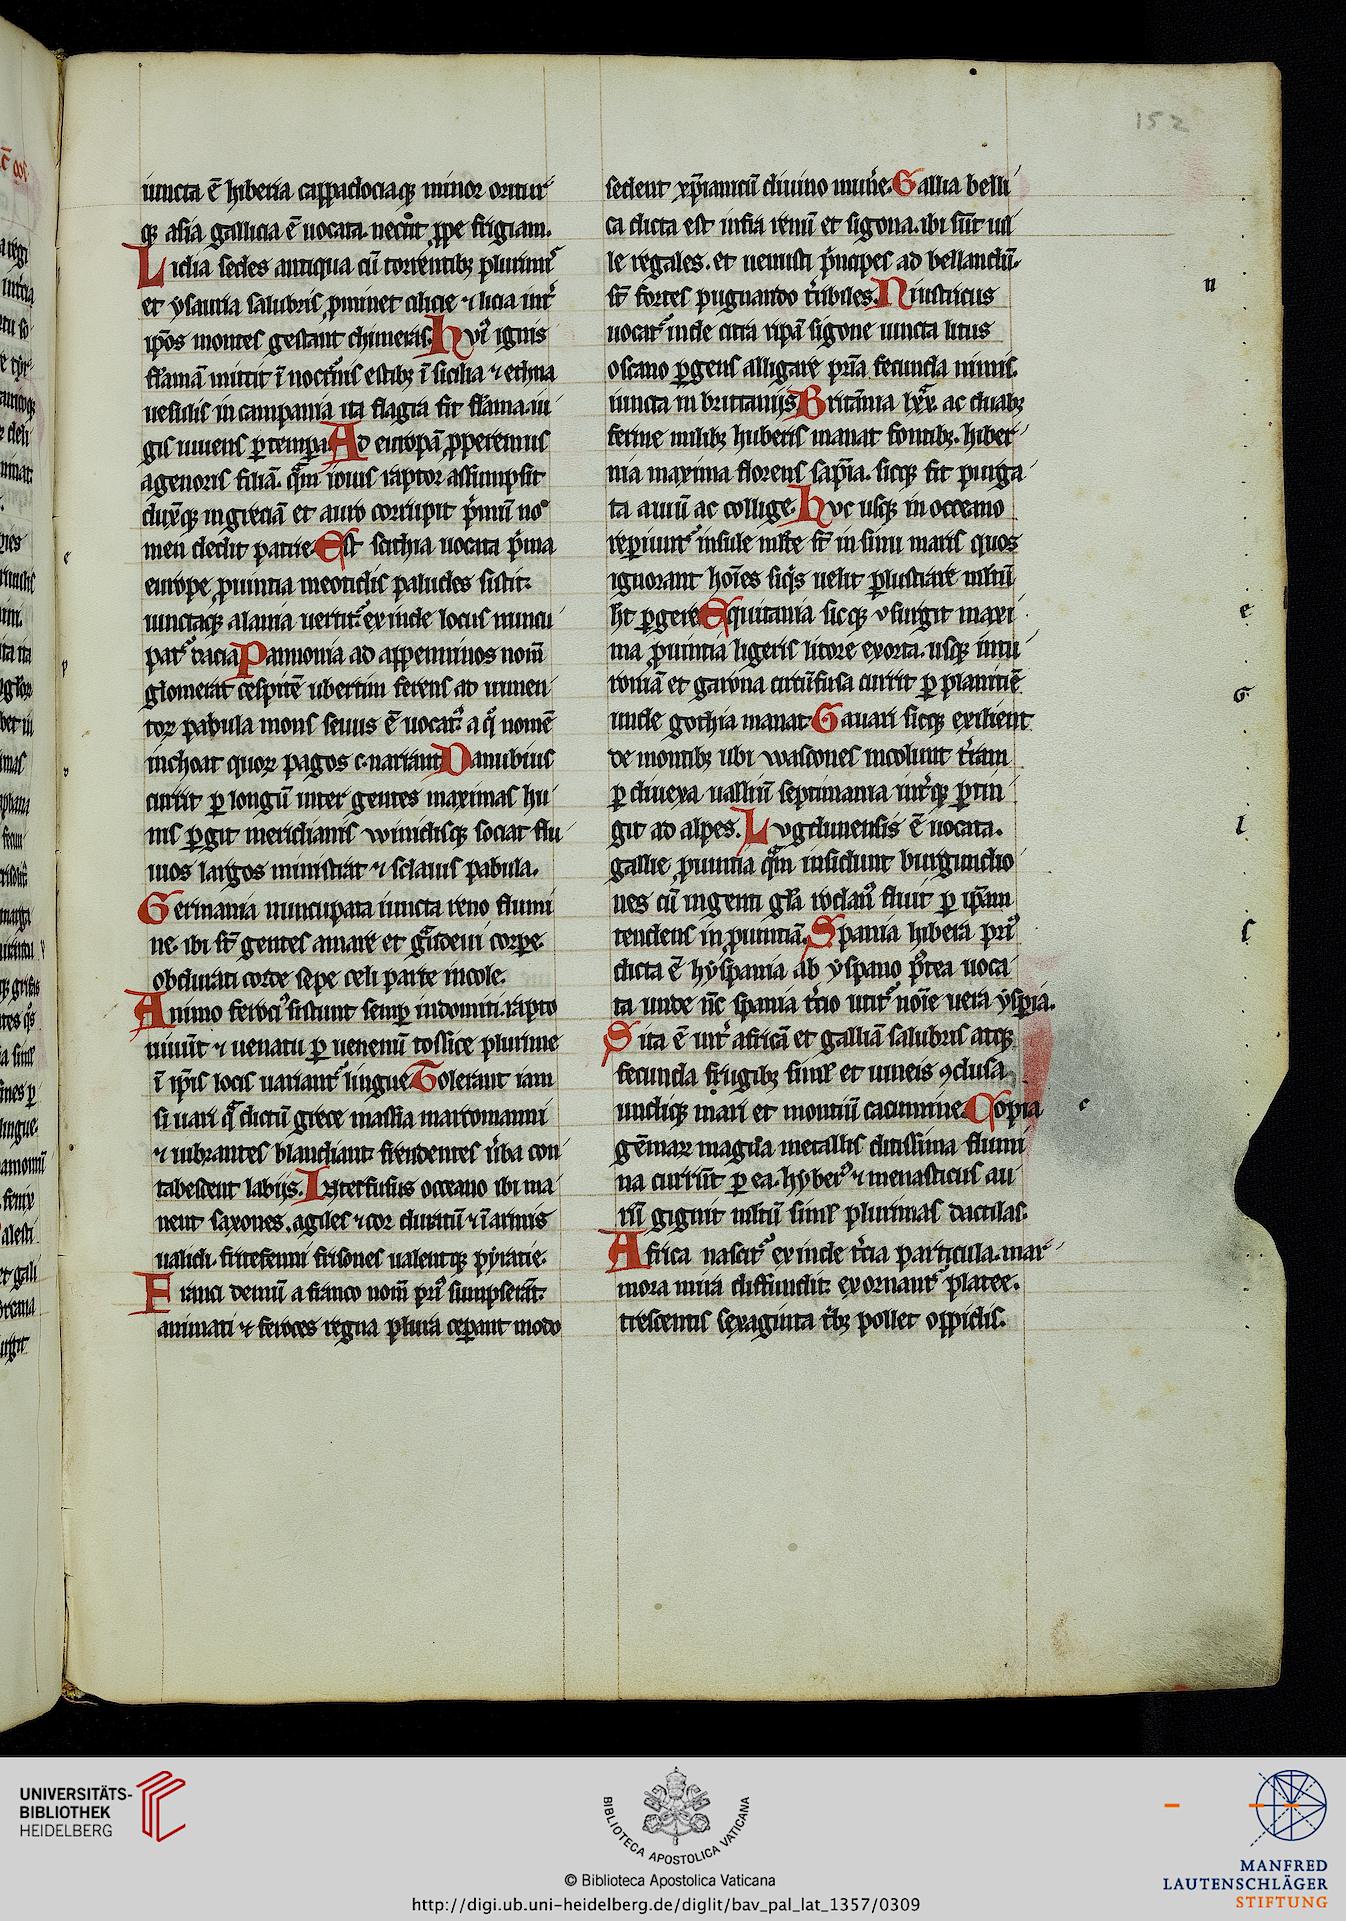 152
iuncta ē hiberia cappadociaqꝫ minor oritur
qꝫ asia gallicia ē uocata. necnͦt ꝓpe frigiam.
Lidia sedes antiqua cū torrentibꝫ plurimis
et ysauria salubris ꝓminet cilicie ⁊ licia int̉
ip̄os montes gestant chimeras. Huiꝰ ignis
flāmā mittit ī nocturnis estibꝫ ī sicilia ⁊ ethna
uesulis in campania ita flagra fit flāma. iu
gis uiuens ꝑ tempa Ad europā ꝓperemus
agenoris filiā. quā iouis raptor assumpsit
duxqꝫ in greciā et auro corrupit p̉mū no
men dedit patrie. Est scithia uocata p̉ma
europe ꝓuintia meotidis paludes sistit.
iunctaqꝫ alania uertit᷒ exinde locus nuncu
pat᷒ dacia Pannonia ad appenninos nom̄
glomerat cespitē ubertim ferens ad iumen
toꝝ pabula mons seuus ē uocat᷒ a q̊ nomē
inchoat quoꝝ pagos c. nariant Danubius
currit ꝑ longū inter gentes maximas hu
nis ꝑgit meridianis winidisqꝫ sociat flu
uios largos ministrat ⁊ sclauis pabula.
Germania nuncupata iuncta reno flumi
ne. ibi st̄ gentes amare et grādeui corpe.
obdurati corde sepe celi parte incole.
Animo ferociꝰ sistunt semꝑ indomiti. rapto
uiuūt ⁊ uenatu ꝑ uenenū toslice plurime
ī ip̄is locis uariant᷒ lingue. Tolerant iam
si uari q̄ dictū grece massia marcomanni
⁊ uibrantes blandiant frendentes u̓ba con
tabescent labijs. Interfusus occeano ibi ma
nent saxones. agiles ⁊ cor duratū ⁊ ī armis
ualidi. fritefenni frisones ualentqꝫ pyratie.
Franci demū a franco nom̄ priꝰ sumpserāt.
animati ⁊ feroces regna plura ceperant modo
sedent xp̄ianicū diuino mun̉e. Gallia belli
ca dicta est infra renū et sigona. ibi sūt uil
le regales. et uenusti p̉ncipes ad bellandū.
st̄ fortes pugnando t̓ribiles. Niustricus
uocat᷒ inde citra ripā sigone iuncta litus
oscano ꝑgens alligare p̉ria fecunda nimis.
iuncta in brittanijs Britānia lxx. ac duabꝫ
ferme milibꝫ huberis manat fontibꝫ. hiber
nia maxima florens sapīa. sicqꝫ fit purga
ta auiū ac collige. Huc usqꝫ in occeano
reperiunt᷒ insule iuste st̄ in sinu maris quos
ignorant hoīes siqͥs uelit ꝑlustrare multū
ht ꝑgere Equitania sicqꝫ vsurgit maxi
ma ꝓuintia ligeris litore exorta. usqꝫ intu
roniā et garona circūfusa currit ꝑ planitiē
unde gothia manat. Gauari sicqꝫ exilient
de montibꝫ ubi wascones incolunt t̓ram
ꝑ diuexa uallium septimania int̓qꝫ ꝑtin
git ad alpes. Lugdunensis ē uocata.
gallie ꝓuintia quā insidunt burgundio
nes cū ingenti gl̄a rodanꝰ fluit ꝑ ip̄am
tendens in ꝓuintiā. Spania hibera priꝰ
dicta ē hyspania ab yspano p̓tea uoca
ta unde nc̄ spania t̓cio utit᷒ noīe uera yspīa.
Sita ē int̓ africā et galliā salubris atqꝫ
fecunda frugibꝫ siml̓ et uineis ꝯclusa
undiqꝫ mari et montiū cacumine. Copia
gēmaꝝ magna metallis ditissima flumi
na currūt ꝑ ea. hyberꝰ ⁊ menasticus au
rū gignit multū siml̓ plurimas dactilas.
Africa nascit᷒ exinde t̓cia particula. mar
mora mira diffundit. exornant᷒ platee.
trescentis sexaginta t̓bꝫ pollet oppidis.
UNIVERSITÄTS-
BIBLIOTHEK
HEIDELBERG
BIBLIOTECA APOSTOLICA VATICANA
© Biblioteca Apostolica Vaticana
http://digi.ub.uni-heidelberg.de/diglit/bav_pal_lat_1357/0309
MANFRED
LAUTENSCHLÄGER
STIFTUNG